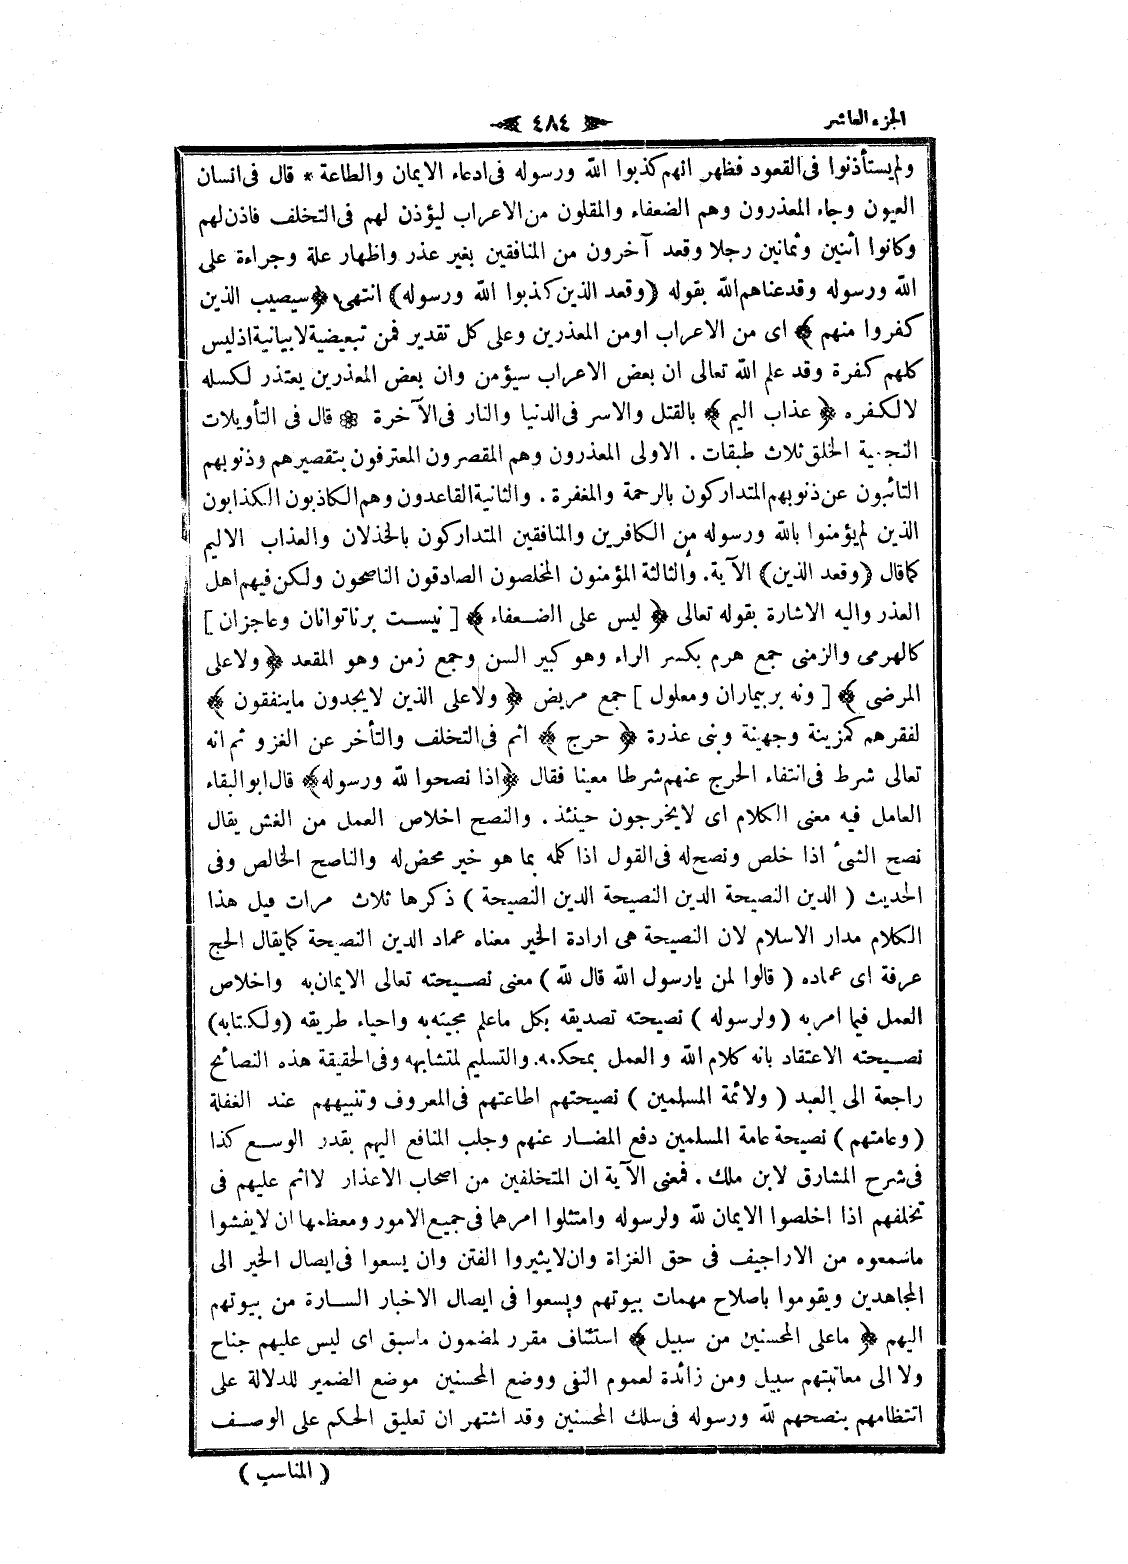 الجزء العاشر
﴿ ٤٨٤ ﴾
ولم يستأذنوا فى القعود فظهر انهم كذبوا الله ورسوله فى ادعاء الايمان والطاعة * قال فى انسان
العيون وجاء المعذرون وهم الضعفاء والمقلون من الاعراب ليؤذن لهم فى التخلف فاذن لهم
وكانوا اثنين وثمانين رجلا وقعد آخرون من المنافقين بغير عذر واظهار علة وجراءة على
الله ورسوله وقدعناهم الله بقوله (وقعد الذين كذبوا الله ورسوله) انتهى ﴿سيصيب الذين
كفروا منهم ﴾ اى من الاعراب اومن المعذرين وعلى كل تقدير فمن تبعيضية لابيانية اذليس
كلهم كفرة وقد علم الله تعالى ان بعض الاعراب سيؤمن وان بعض المعذرين يعتذر لكسله
لالكفره ﴿ عذاب اليم ﴾ بالقتل والاسر فى الدنيا والنار فى الآخرة ❁ قال فى التأويلات
النجمية الخلق ثلاث طبقات . الاولى المعذرون وهم المقصرون المعترفون بتقصيرهم وذنوبهم
التائبون عن ذنوبهم المتداركون بالرحمة والمغفرة . والثانية القاعدون وهم الكاذبون الكذابون
الذين لم يؤمنوا بالله ورسوله من الكافرين والمنافقين المتداركون بالخذلان والعذاب الاليم
كماقال (وقعد الذين) الآية . والثالثة المؤمنون المخلصون الصادقون الناصحون ولكن فيهم اهل
العذر واليه الاشارة بقوله تعالى ﴿ ليس على الضعفاء ﴾ [ نيست برناتوانان وعاجزان ]
كالهرمى والزمنى جمع هرم بكسر الراء وهو كبير السن وجمع زمن وهو المقعد ﴿ ولاعلى
المرضى ﴾ [ ونه بربيماران ومعلول ] جمع مريض ﴿ ولاعلى الذين لايجدون ماينفقون ﴾
لفقرهم كمزينة وجهينة وبنى عذرة ﴿ حرج ﴾ اثم فى التخلف والتأخر عن الغزو ثم انه
تعالى شرط فى انتفاء الحرج عنهم شرطا معينا فقال ﴿اذا نصحوا لله ورسوله﴾ قال ابوالبقاء
العامل فيه معنى الكلام اى لايخرجون حينئذ . والنصح اخلاص العمل من الغش يقال
نصح الشئ اذا خلص ونصح له فى القول اذا كلمه بما هو خير محض له والناصح الخالص وفى
الحديث ( الدين النصيحة الدين النصيحة الدين النصيحة ) ذكرها ثلاث مرات قيل هذا
الكلام مدار الاسلام لان النصيحة هى ارادة الخير معناه عماد الدين النصيحة كمايقال الحج
عرفة اى عماده ( قالوا لمن يارسول الله قال لله ) معنى نصيحته تعالى الايمان به واخلاص
العمل فيما امر به ( ولرسوله ) نصيحته تصديقه بكل ماعلم مجيئه به واحياء طريقه (ولكتابه)
نصيحته الاعتقاد بانه كلام الله و العمل بمحكمه . والتسليم لمتشابهه وفى الحقيقة هذه النصائح
راجعة الى العبد ( ولائمة المسلمين ) نصيحتهم اطاعتهم فى المعروف وتنبيههم عند الغفلة
( وعامتهم ) نصيحة عامة المسلمين دفع المضار عنهم وجلب المنافع اليهم بقدر الوسع كذا
فى شرح المشارق لابن ملك . فمعنى الآية ان المتخلفين من اصحاب الاعذار لااثم عليهم فى
تخلفهم اذا اخلصوا الايمان لله ولرسوله وامتثلوا امرهما فى جميع الامور ومعظمها ان لايفشوا
ماسمعوه من الاراجيف فى حق الغزاة وان لايثيروا الفتن وان يسعوا فى ايصال الخير الى
المجاهدين ويقوموا باصلاح مهمات بيوتهم ويسعوا فى ايصال الاخبار السارة من بيوتهم
اليهم ﴿ ماعلى المحسنين من سبيل ﴾ استئناف مقرر لمضمون ماسبق اى ليس عليهم جناح
ولا الى معاتبتهم سبيل ومن زائدة لعموم النفى ووضع المحسنين موضع الضمير للدلالة على
انتظامهم بنصحهم لله ورسوله فى سلك المحسنين وقد اشتهر ان تعليق الحكم على الوصف
( المناسب )